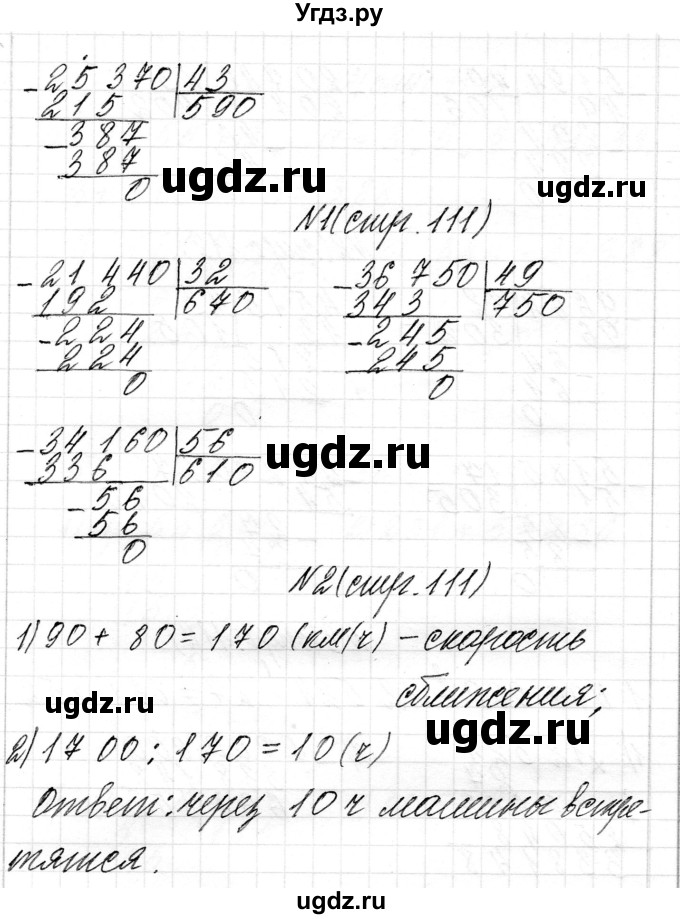 Угдз.ру
- 25370 | 43
215 | 590
- 387
387
0
ugdz.ru
ugdz.ru
N1(стр. 111)
- 21 440 | 32
192 | 670
- 224
224
0
- 36 750 | 49
343 | 750
- 245
245
0
- 34 160 | 56
336 | 610
- 56
56
0
ugdz.ru
ugdz.ru
N2(стр. 111)
1) 90 + 80 = 170 (км/ч) - скорость
сближения;
ugdz.ru
ugdz.ru
2) 1700 : 170 = 10 (ч)
Ответ: через 10 ч машины встре-
тятся.
ugdz.ru